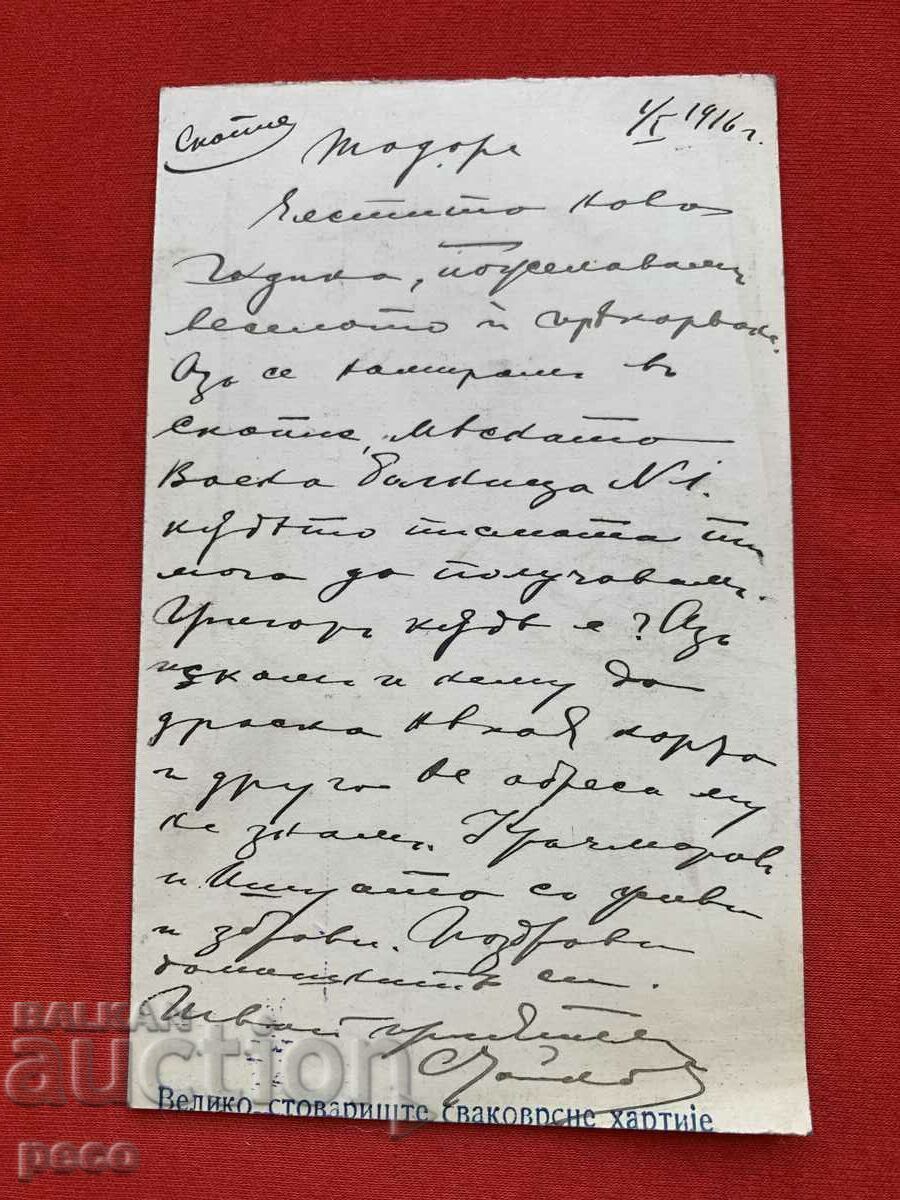 Скопие 1/I 1916 г.
Тодоре
Честито ново
година, пожелавамъ
веселото и
Азъ се намирамъ въ
Скопие,
Воена болница N 1.
кѫдѣто писмата ти
мога да получавамъ.
Григоръ кѫдѣ е? Азъ
искамъ и нему да
драсна нѣкоя карта
и друго не адреса му
не знамъ. Крачмаровъ
и са живи
и здрави. Поздрави
домашнитѣ си.
Твой приятель
Велико стовариште сваковрсне хартије
BALKAN
auction
peco